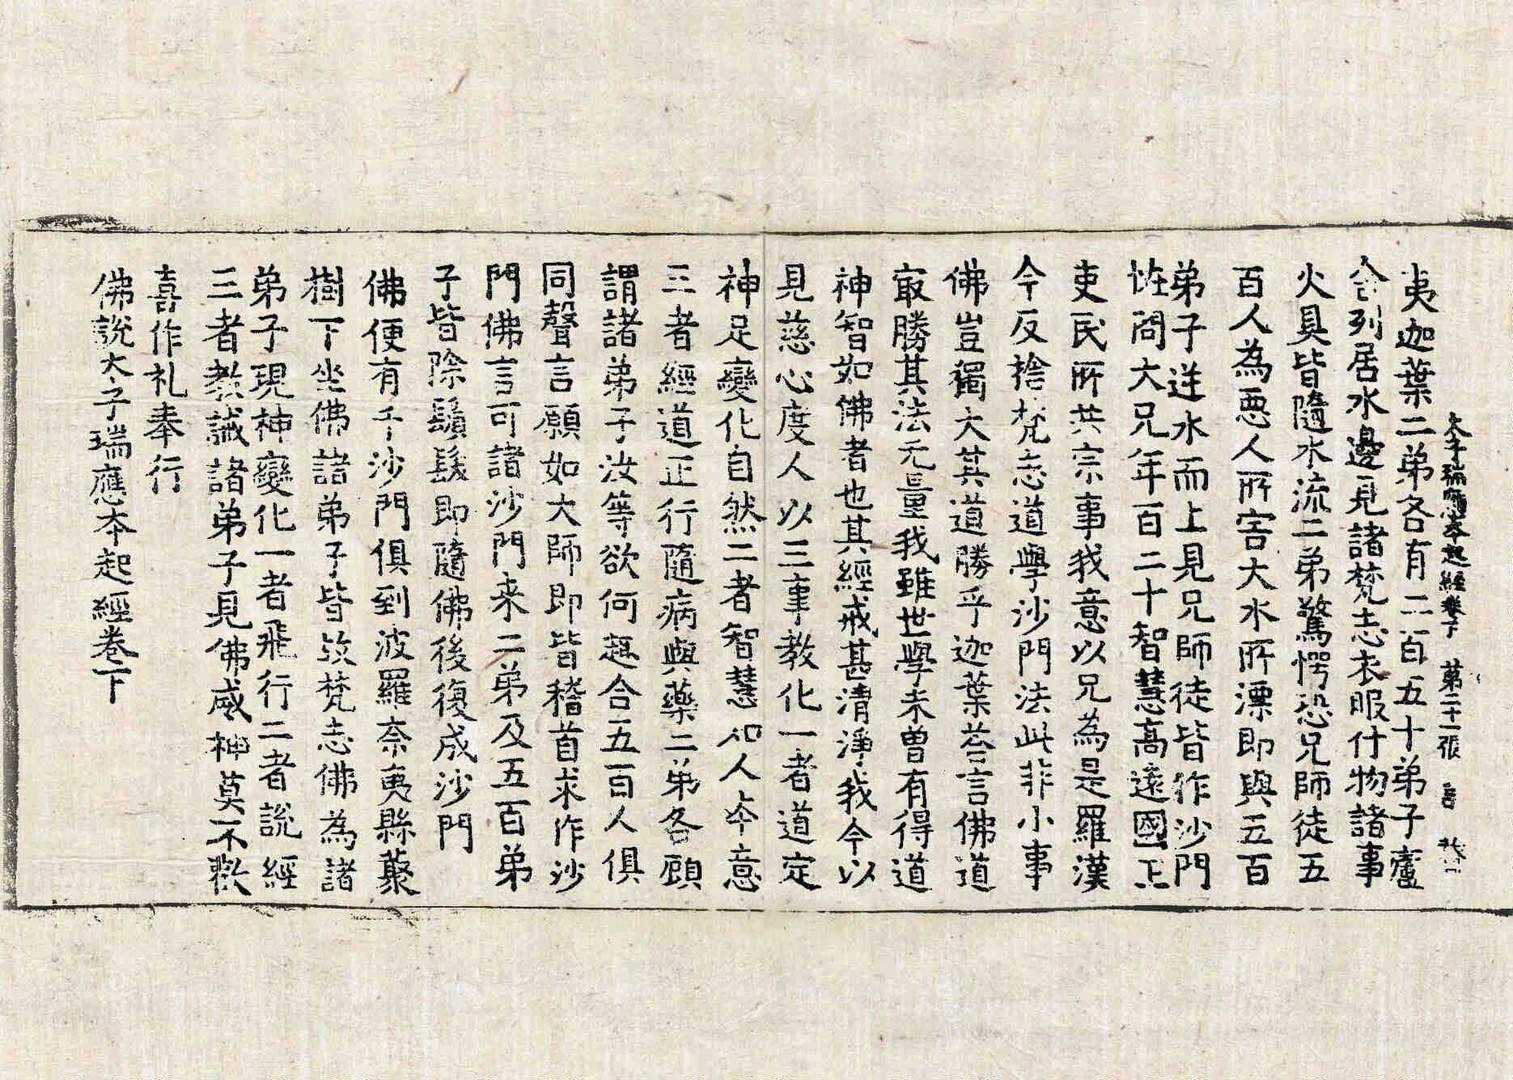 太子瑞應本起經卷下 第二十二張
夷迦葉二弟各有二百五十弟子廬
舎列居水邊見諸梵志衣服什物諸事
火具皆隨水流二弟驚愕恐兄師徒五
百人為惡人所害大水所漂即與五百
弟子逆水而上見兄師徒皆作沙門
怪問大兄年百二十智慧高遠國王
吏民所共宗事我意以兄為是羅漢
今反捨梵志道學沙門法此非小事
佛豈獨大其道勝乎迦葉荅言佛道
㝡勝其法无量我雖世學未曽有得道
神智如佛者也其經戒甚清淨我今以
見慈心度人以三事教化一者道定
神足變化自然二者智慧知人夲意
三者經道正行隨病與藥二弟各顧
謂諸弟子汝等欲何趣合五百人俱
同聲言願如大師即皆稽首求作沙
門佛言可諸沙門来二弟及五百弟
子皆除鬚髮即隨佛後復成沙門
佛便有千沙門俱到波羅奈夷縣藂
樹下坐佛諸弟子皆故梵志佛為諸
弟子現神變化一者飛行二者說經
三者教誡諸弟子見佛威神莫不歡
喜作礼奉行
佛說太子瑞應夲起經卷下